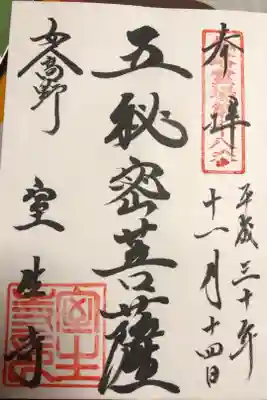 奉拝
平成三十年
十一月十四日
五秘密菩薩
女人高野
室生寺